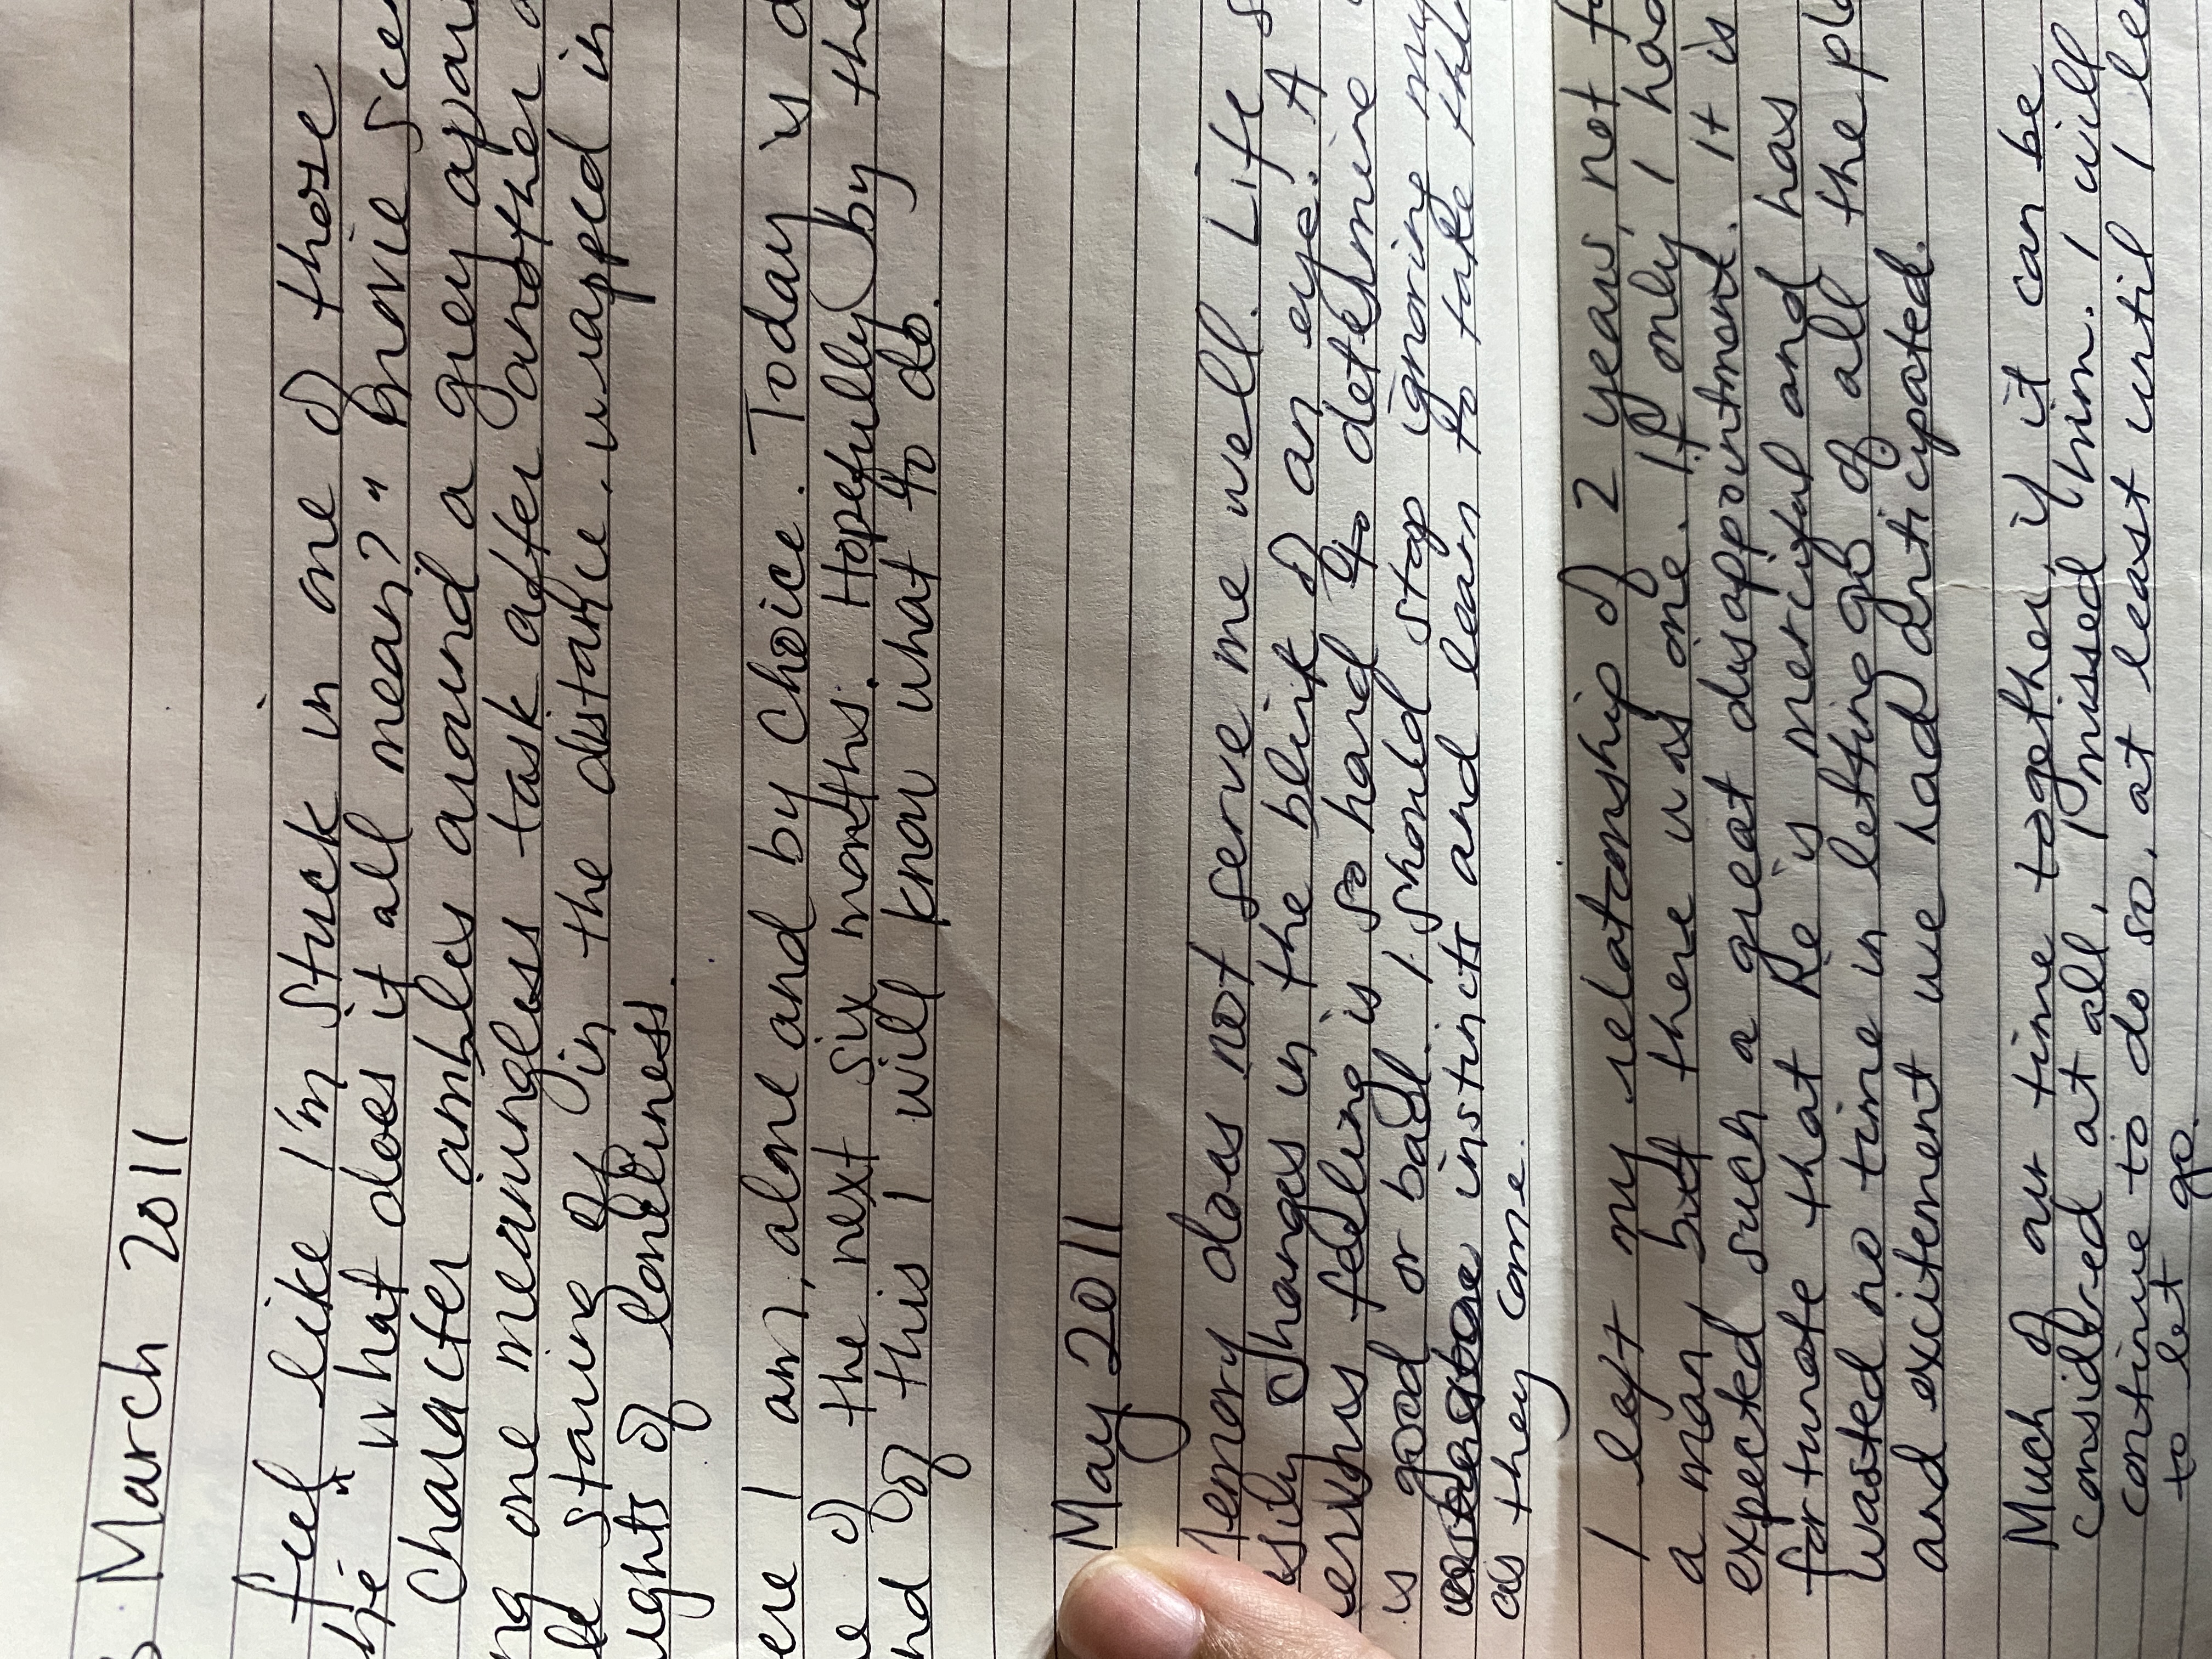 March 2011
feel like I'm stuck in one of those
hé "what does it all mean?" movie sce
Character ambles around a grey apar
ng one meaningless task after another a
le staring off in the distance, wrapped in
ughts of loneliness.
ere I am, alone and by choice. Today is d
e of the next six months. Hopefully by the
nd of this I will know what to do.
May 2011
Memory does not serve me well. Life s
sily changes in the blink of an eye. A
ervous feeling is so hard to determine
is good or bad. I should stop ignoring my
instincts and learn to take them
as they come.
I left my relationship of 2 years, not fo
a man, but there was one. If only I had
expected such a great disappointment. It is
fortunate that he is merciful and has
wasted no time in letting go of all the pla
and excitement we had anticipated.
Much of our time together, if it can be
considered at all, I missed him. I will
continue to do so, at least until I lea
to let go.